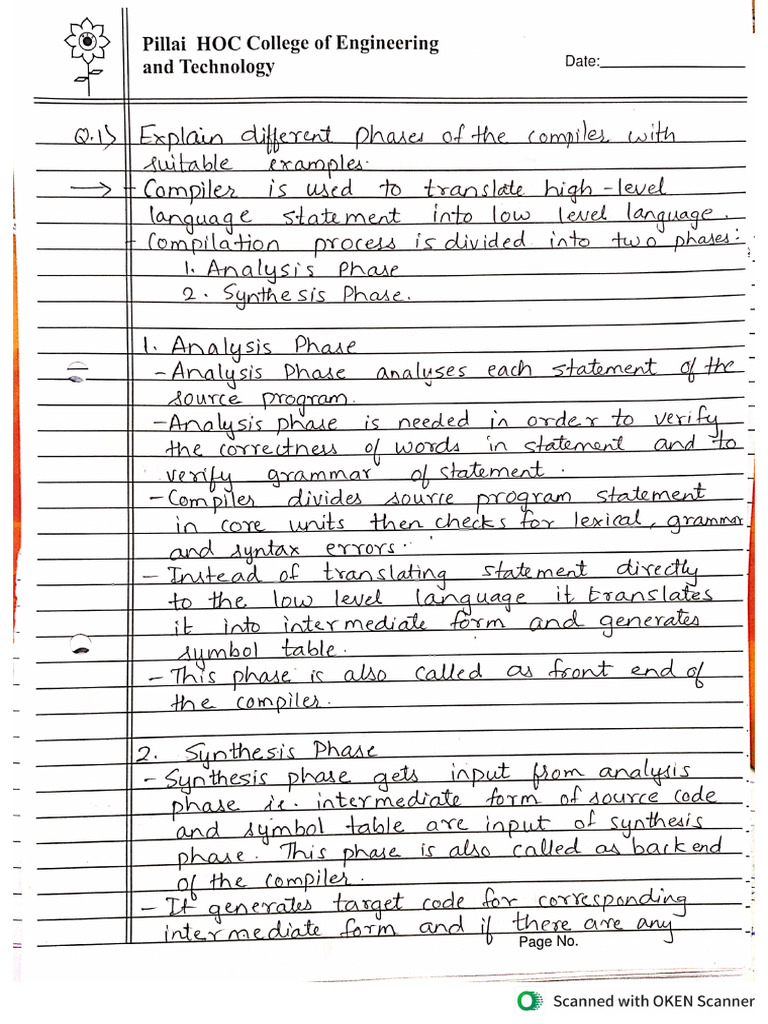 Pillai HOC College of Engineering
and Technology
Date:
Q.1) Explain different phases of the compiler with
suitable examples.
→ - Compiler is used to translate high-level
language statement into low level language.
- Compilation process is divided into two phases:
1. Analysis Phase
2. Synthesis Phase.
1. Analysis Phase
- Analysis Phase analyses each statement of the
source program.
- Analysis phase is needed in order to verify
the correctness of words in statement and to
verify grammar of statement.
- Compiler divides source program statement
in core units then checks for lexical, grammar
and syntax errors.
- Instead of translating statement directly
to the low level language it translates
it into intermediate form and generates
symbol table.
- This phase is also called as front end of
the compiler.
2. Synthesis Phase
- Synthesis phase gets input from analysis
phase i.e. intermediate form of source code
and symbol table are input of synthesis
phase. This phase is also called as back end
of the compiler.
- It generates target code for corresponding
intermediate form and if there are any
Page No.
Scanned with OKEN Scanner